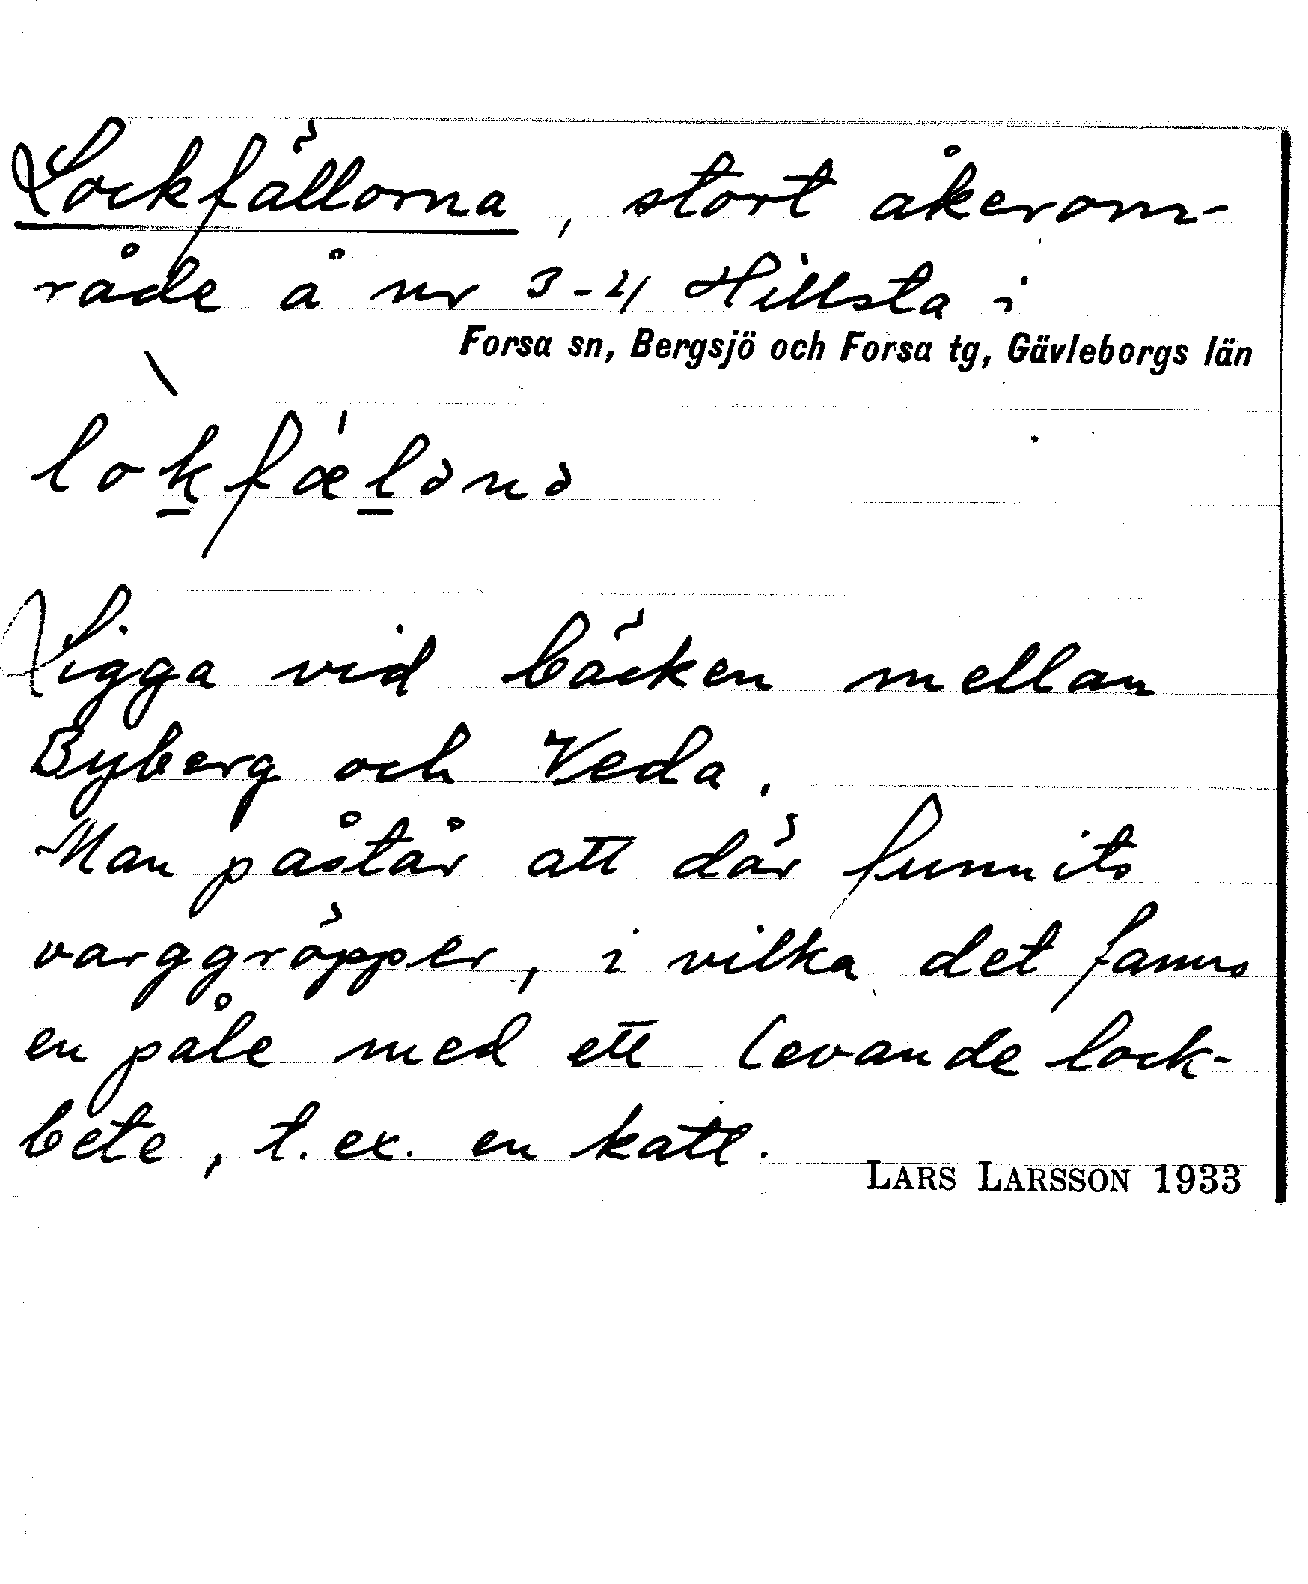 Lockfällorna, stort åkerom-
råde å nr 3-4 Hillsta i
Forsa sn, Bergsjö och Forsa tg, Gävleborgs län
lòkfæ̍lənə
Ligga vid bäcken mellan
Byberg och Veda.
Man påstår att där funnits
varggröpper, i vilka det fanns
en påle med ett levande lock-
bete, t.ex. en katt.
LARS LARSSON 1933